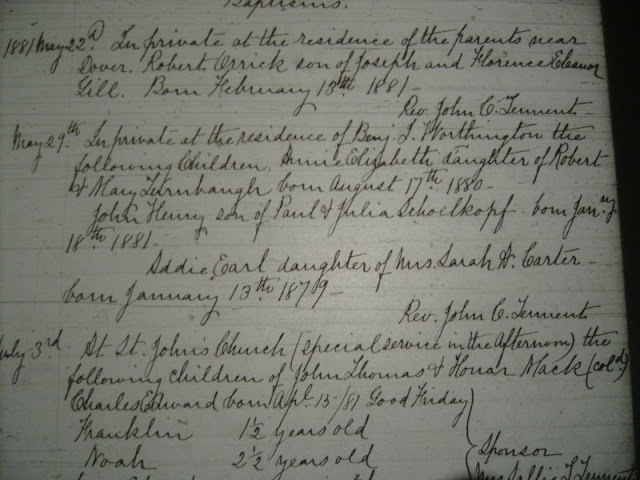 Baptisms.
1881 May 22d. In private at the residence of the parents near
Dover. Robert Orrick son of Joseph and Florence Eleanor
Gill. Born February 13th 1881—
Rev. John C. Tennent—
May 29th. In private at the residence of Benj. T. Worthington the
following Children. Annie Elizabeth daughter of Robert
& Mary Turnbaugh born August 17th 1880—
John Henry son of Paul & Julia Schoelkopf born Jan'y
18th 1881—
Addie Earl daughter of Mrs. Sarah A. Carter—
born January 13th 1879—
Rev. John C. Tennent
July 3rd. At St. John's Church (special service in the Afternoon) the
following children of John Thomas & Honar Mack (cold)
Charles Edward born Apl. 15/81 Good Friday
Franklin 1½ years old
Noah 2½ years old
Sponsor
Tennent